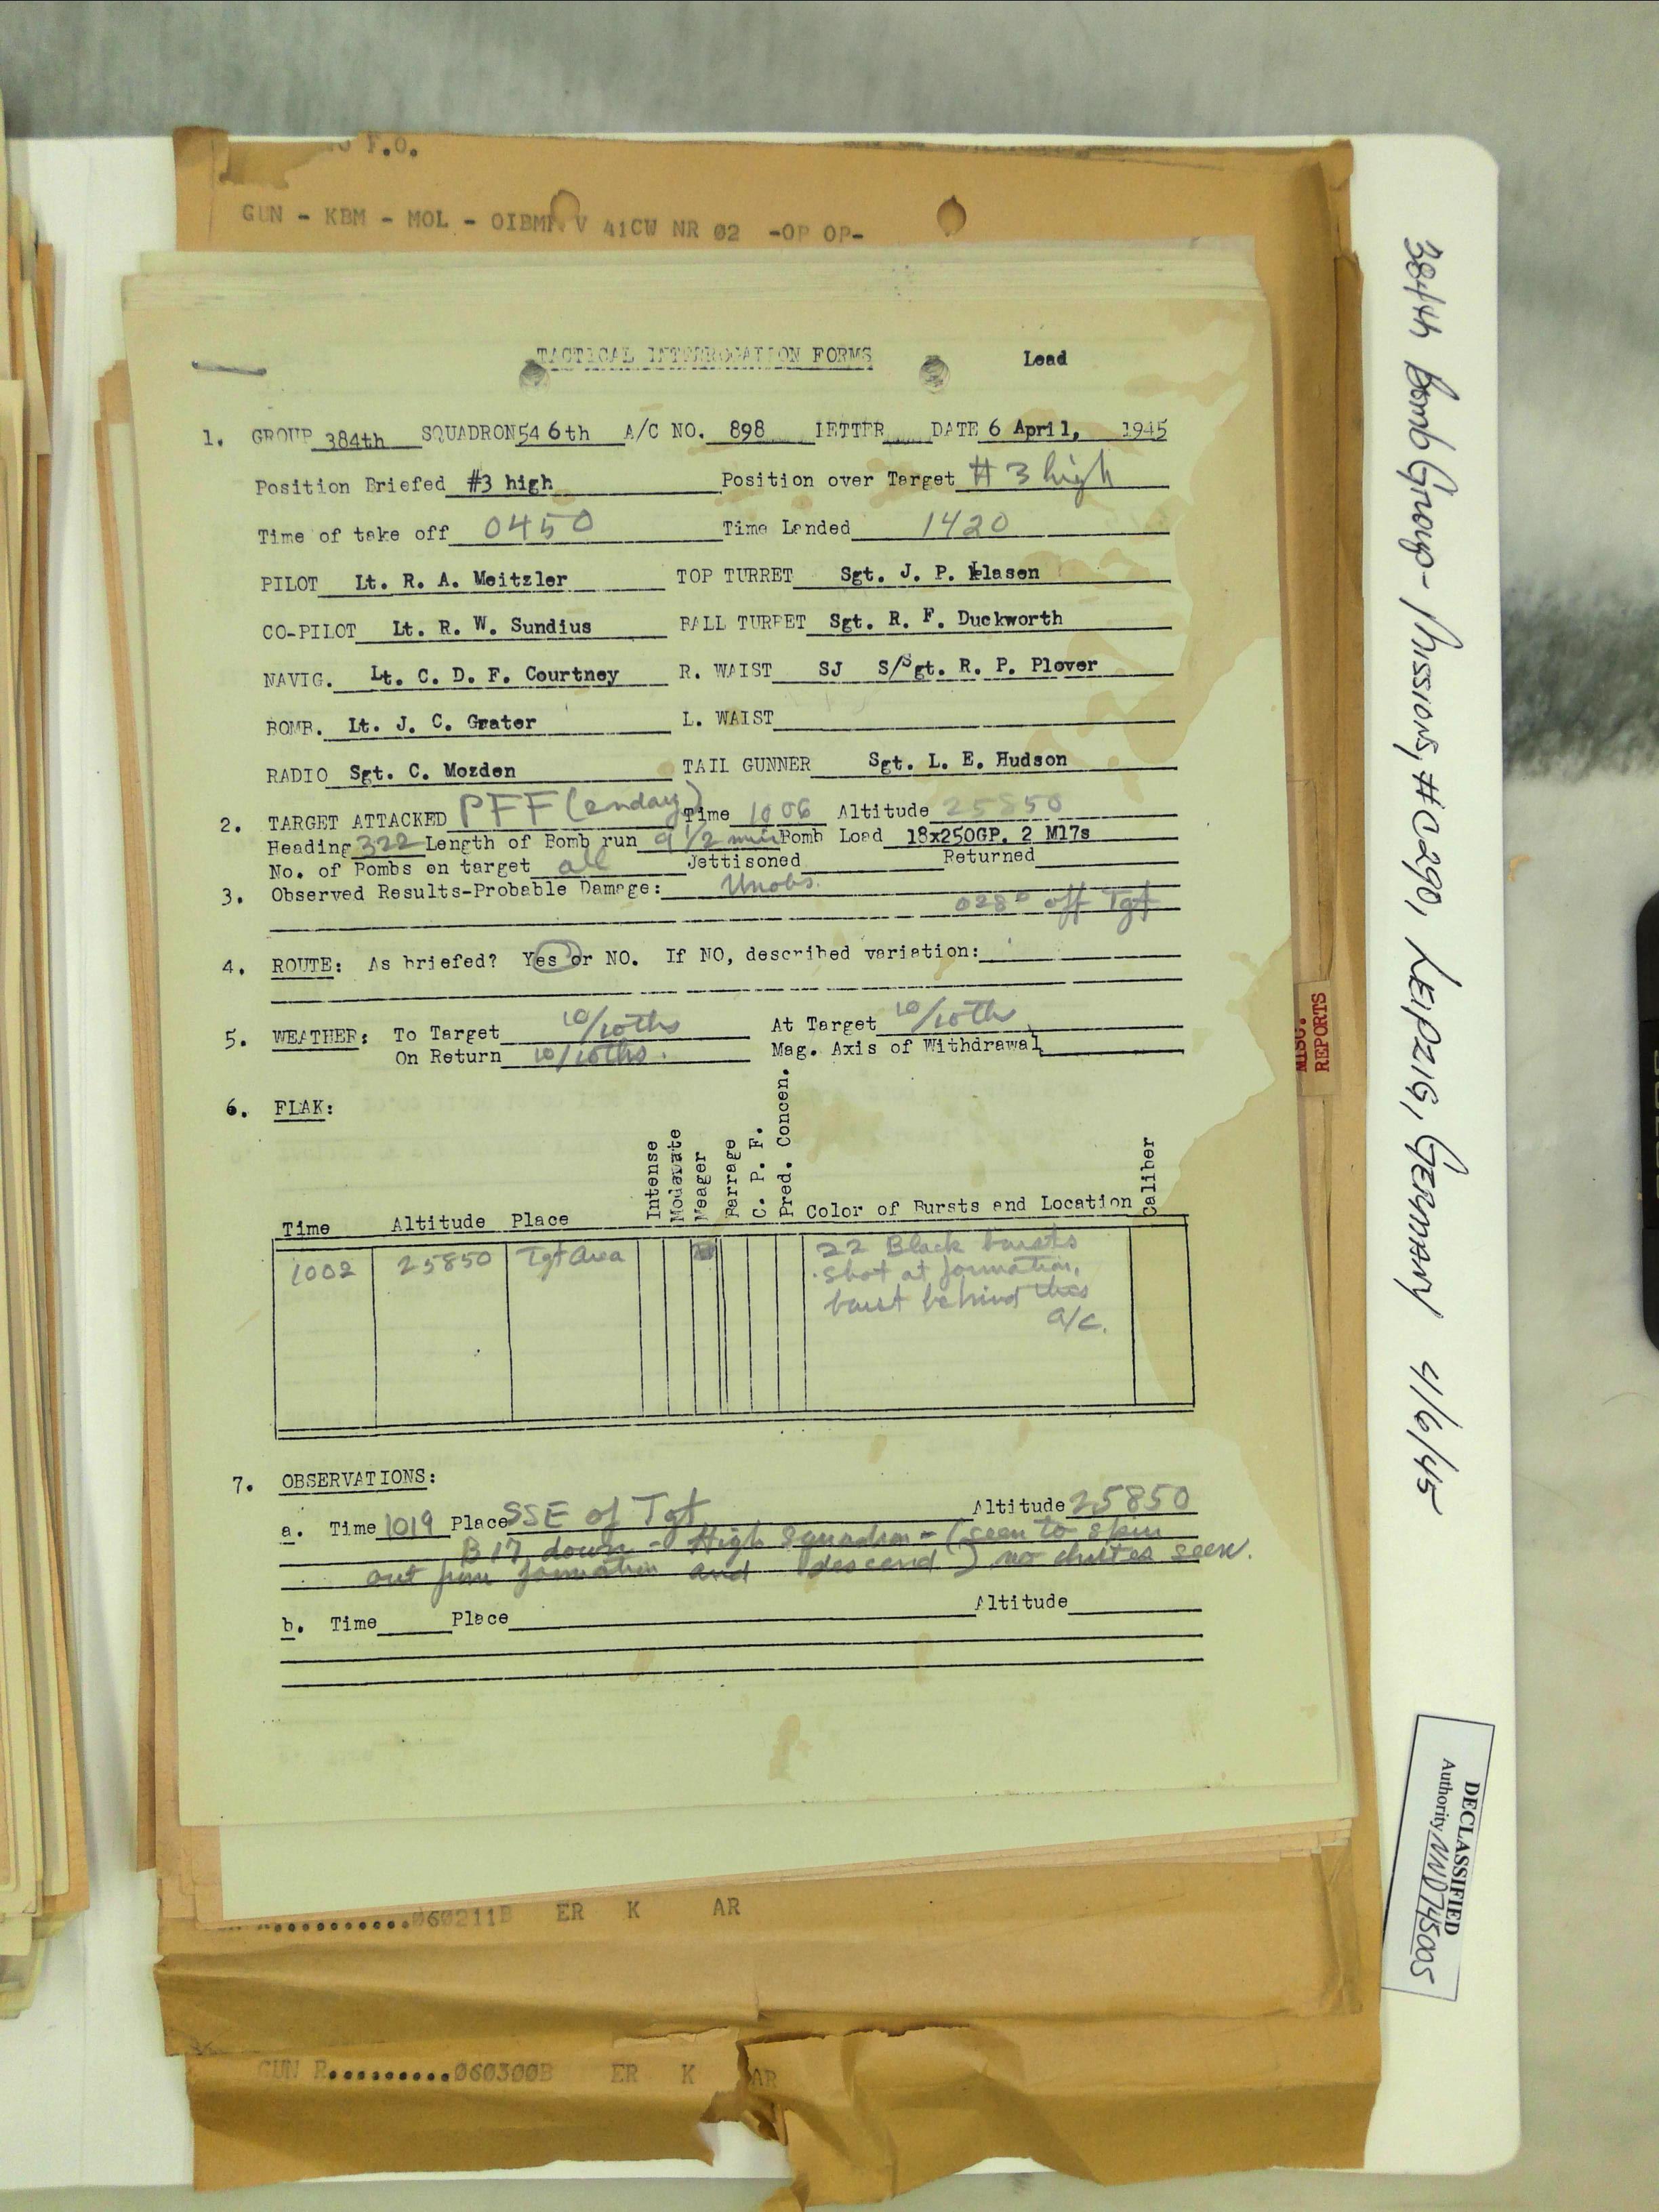 F.O.
GUN - KBM - MOL - OIBMR V 41CW NR 02 -OP OP-
TACTICAL INTERROGATION FORMS Lead
1. GROUP 384th SQUADRON 546th A/C NO. 898 LETTER DATE 6 April, 1945
Position Briefed #3 high Position over Target #3 high
Time of take off 0450 Time Landed 1420
PILOT Lt. R. A. Meitzler TOP TURRET Sgt. J. P. Klasen
CO-PILOT Lt. R. W. Sundius BALL TURRET Sgt. R. F. Duckworth
NAVIG. Lt. C. D. F. Courtney R. WAIST SJ S/Sgt. R. P. Plover
BOMB. Lt. J. C. Grater L. WAIST
RADIO Sgt. C. Mozden TAIL GUNNER Sgt. L. E. Hudson
2. TARGET ATTACKED PFF Time 1006 Altitude 25850
Heading 322 Length of Bomb run 9 1/2 min Bomb Load 18x250GP. 2 M17s
No. of Bombs on target all Jettisoned Returned
3. Observed Results-Probable Damage: Unobs.
028° off Tgt
4. ROUTE: As briefed? Yes or NO. If NO, described variation:
5. WEATHER: To Target 10/10ths At Target 10/10ths
On Return 10/10ths. Mag. Axis of Withdrawal
6. FLAK:
Time Altitude Place Intense Moderate Meager Barrage C. P. F. Pred. Concen. Color of Bursts and Location Caliber
1002 25850 Tgt Area 22 Black bursts
shot at formation,
burst behind this
a/c.
7. OBSERVATIONS:
a. Time 1019 Place SSE of Tgt Altitude 25850
B17 down - High Squadron - (seen to spin
out from formation and descend) no chutes seen.
b. Time Place Altitude
060211B ER K AR
GUN R..........060300B ER K AR
MISC. REPORTS
384th Bomb Group - Missions, #a290, LEIPZIG, GERMANY 4/6/45
DECLASSIFIED
Authority NND745005